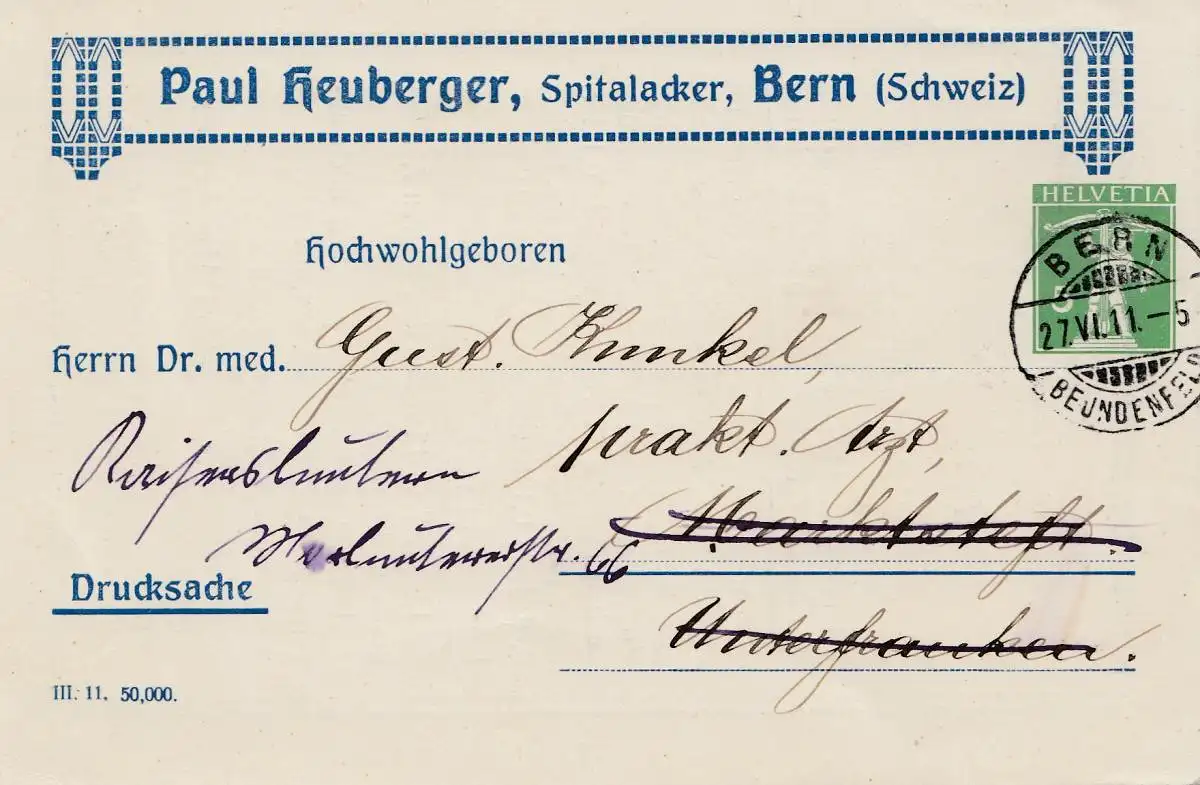 Paul Heuberger, Spitalacker, Bern (Schweiz)
HELVETIA
5
BERN
27.VI.11.–5
BEUNDENFELD
Hochwohlgeboren
Herrn Dr. med. Gust. Kunkel,
prakt. Arzt,
Kaiserslautern
Marktsteft.
Morlautererstr. 66
Drucksache
Unterfranken.
III. 11. 50,000.